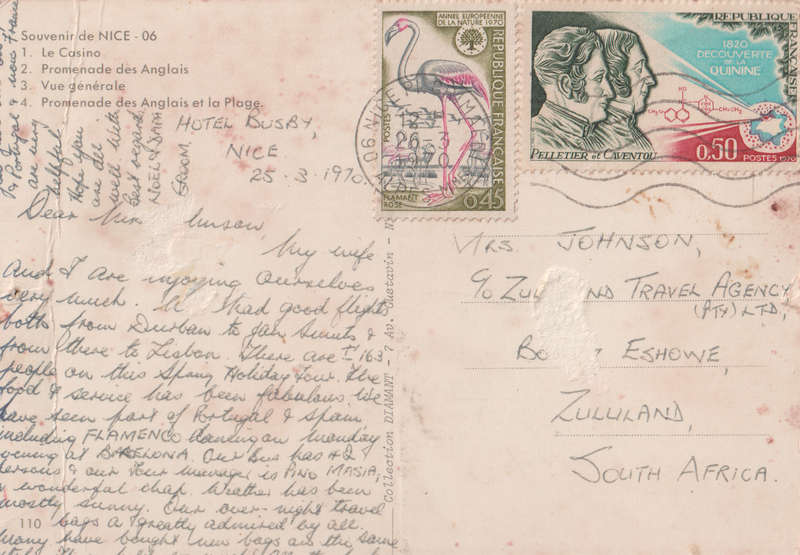 Souvenir de NICE - 06
1. Le Casino
2. Promenade des Anglais
3. Vue générale
4. Promenade des Anglais et la Plage
HOTEL BUSBY,
NICE
25-3-1970.
Dear Mrs Johnson,
My wife
And I are enjoying Ourselves
very much. We had good flights
both from Durban to Jan Smuts &
from there to Lisbon. There are 163
people on this Spring Holiday Tour. The
food & service has been fabulous. We
have seen part of Portugal & Spain
including FLAMENCO dancing on Monday
evening at BARCELONA. Our bus has 42
persons & our tour manager is PINO MASIA,
a wonderful chap. Weather has been
mostly sunny. Our over-night travel
bags are greatly admired by all.
Many have bought new bags are the same
Portugal & now France
are very
helpful
Hope you
are all
well. With
best regards,
110
Collection DIAMANT - 7 Av. Gustavin - N
ANNÉE EUROPÉENNE
DE LA NATURE 1970
RÉPUBLIQUE FRANÇAISE
POSTES
FLAMANT
ROSE
0,45
26-3
1970
RÉPUBLIQUE FRANÇAISE
1820
DÉCOUVERTE
DE LA
QUININE
PELLETIER et CAVENTOU
0,50
POSTES 1970
MRS. JOHNSON,
c/o ZULULAND TRAVEL AGENCY
(PTY) LTD,
ESHOWE,
ZULULAND,
SOUTH AFRICA.